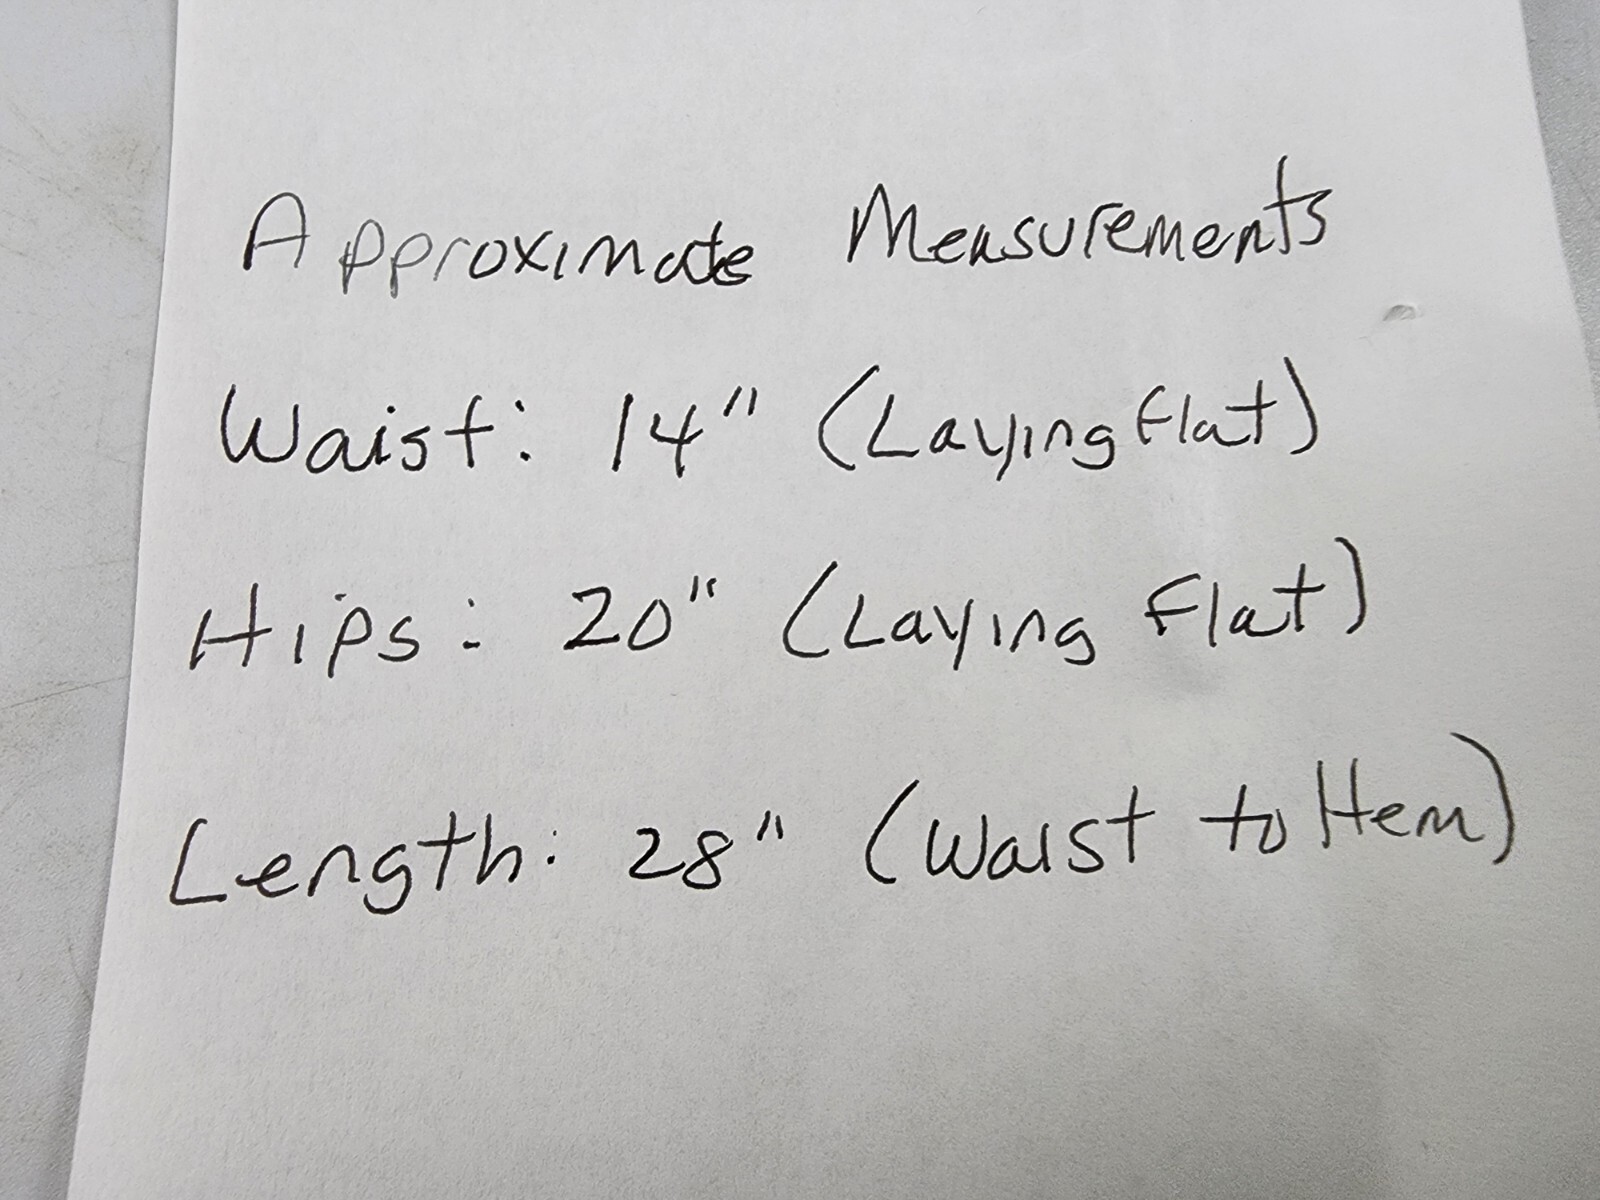 Approximate Measurements
Waist: 14" (Laying flat)
Hips: 20" (Laying Flat)
Length: 28" (Waist to Hem)